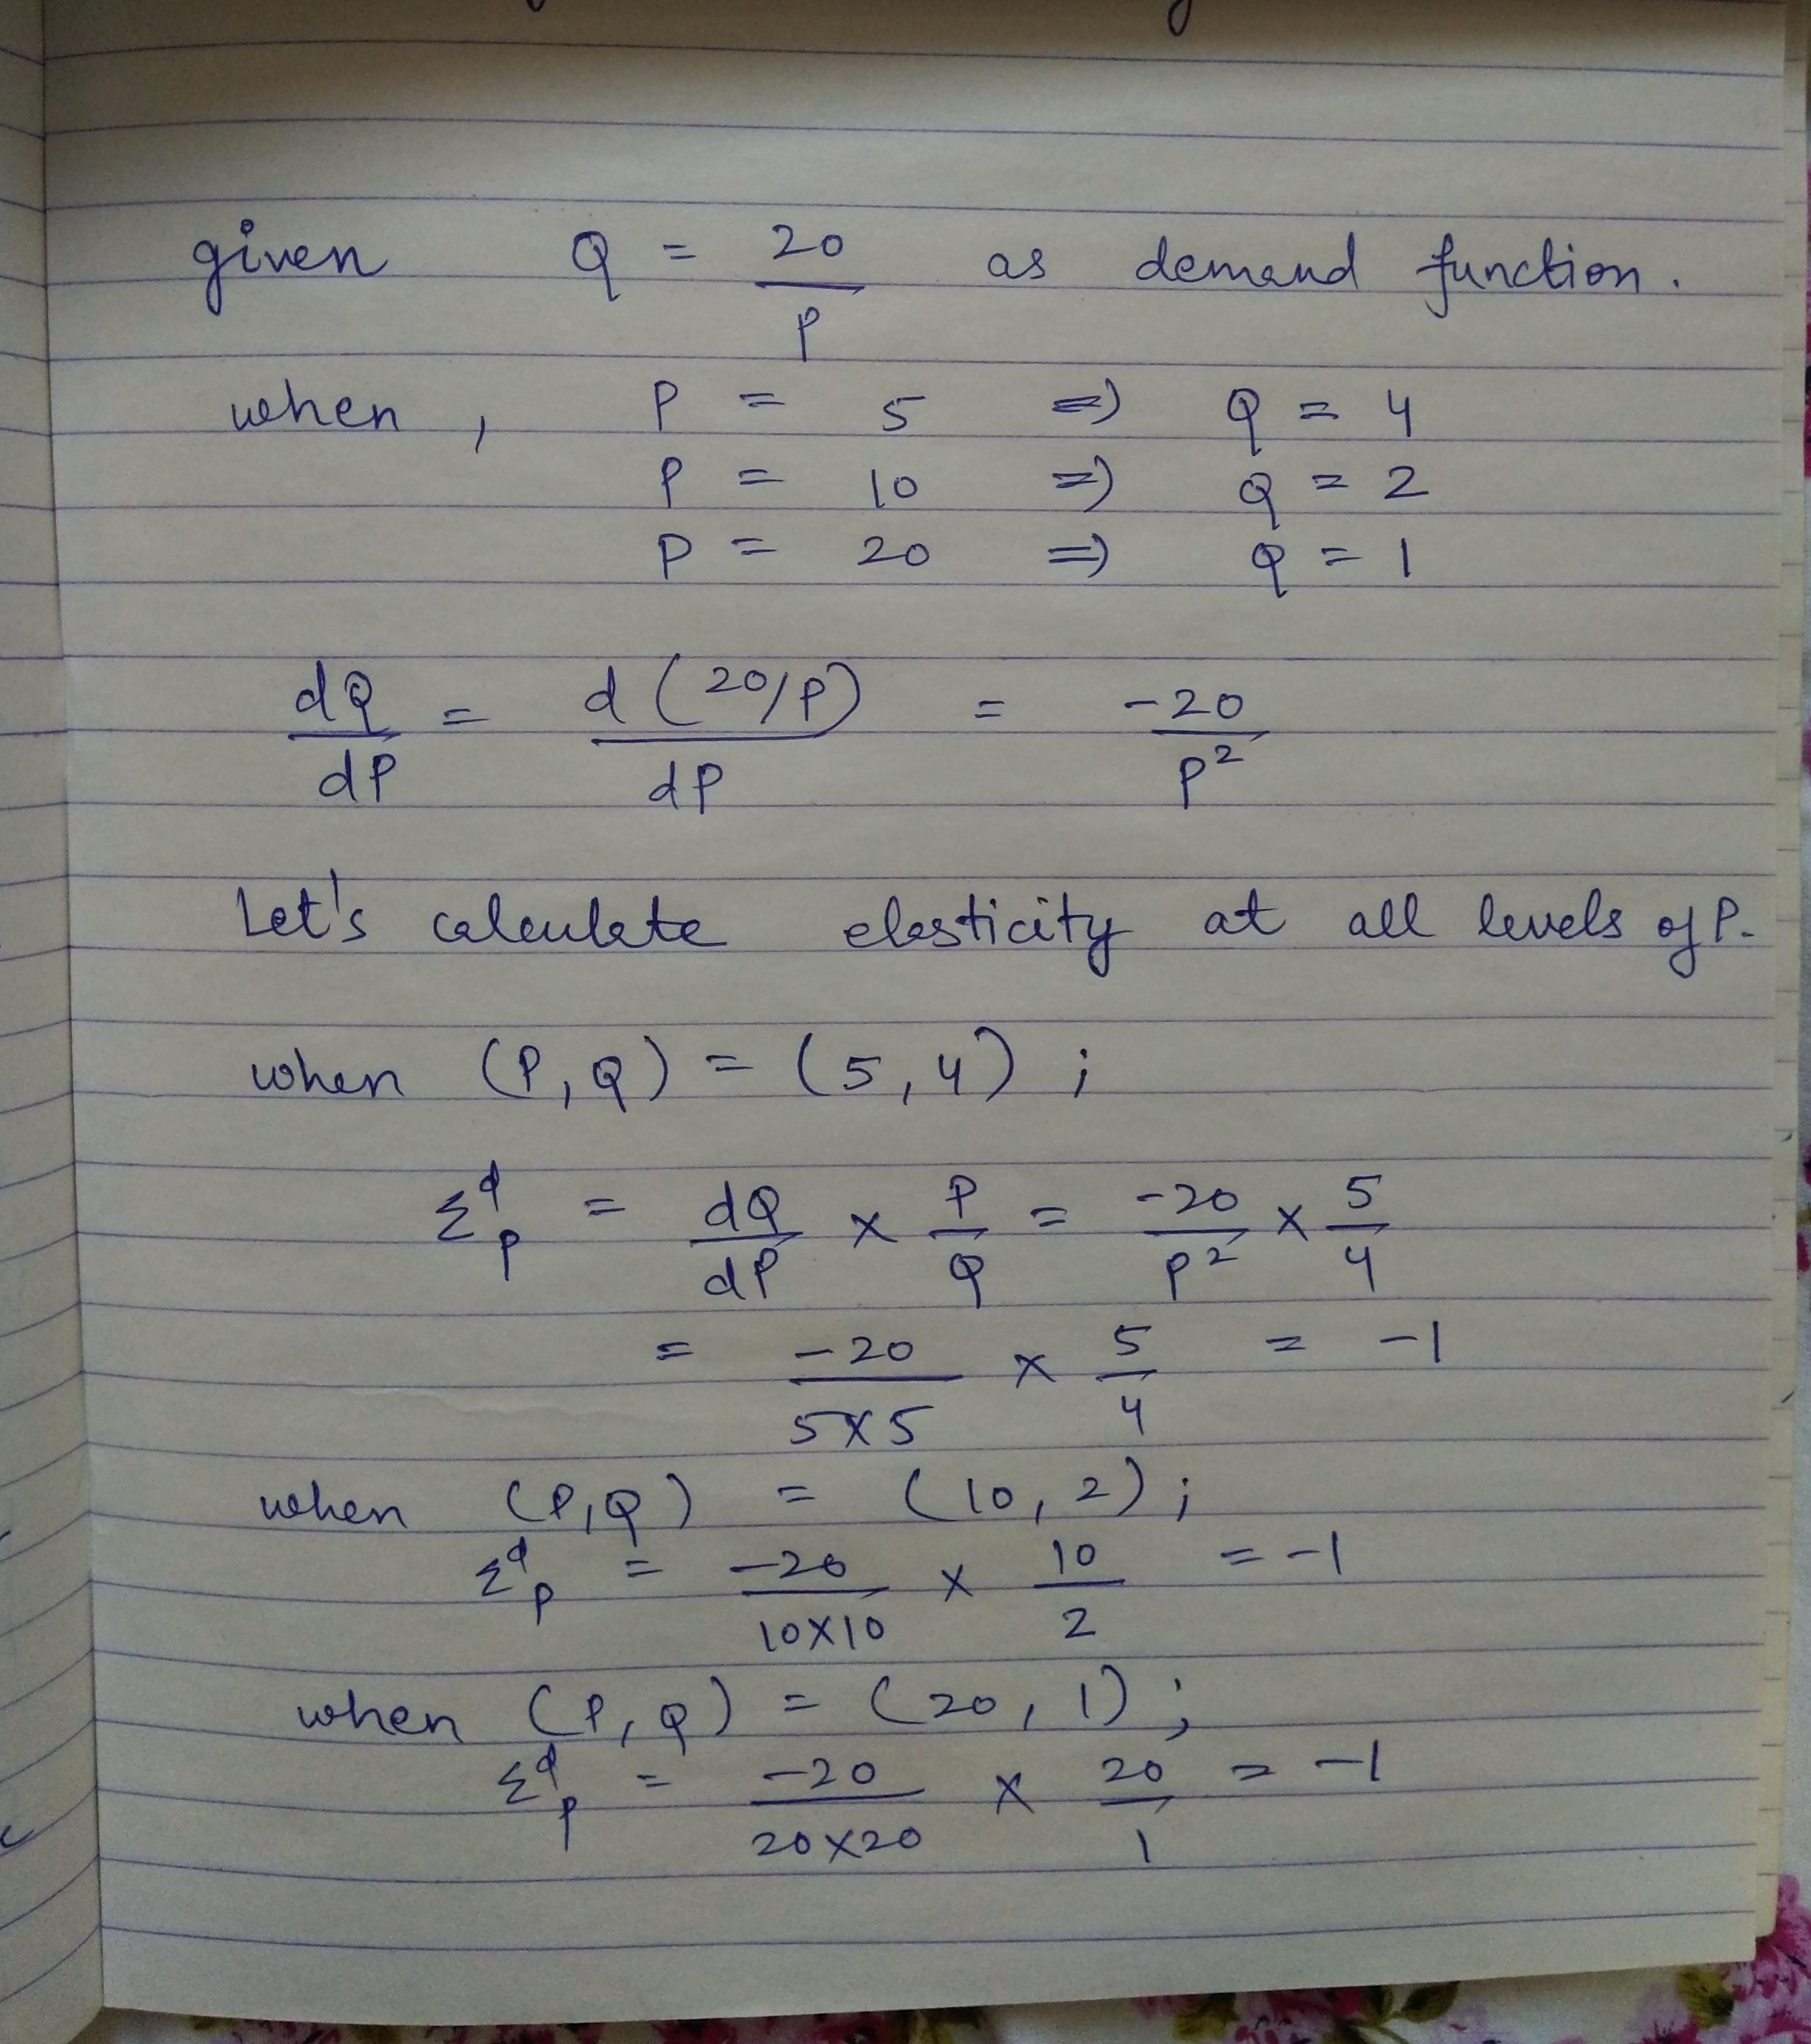 given Q = 20/P as demand function.
when, P = 5 => Q = 4
P = 10 => Q = 2
P = 20 => Q = 1
dQ/dP = d(20/P)/dP = -20/P²
Let's calculate elasticity at all levels of P.
when (P, Q) = (5, 4) ;
Σᵈₚ = dQ/dP × P/Q = -20/P² × 5/4
= -20/5×5 × 5/4 = -1
when (P, Q) = (10, 2) ;
Σᵈₚ = -20/10×10 × 10/2 = -1
when (P, Q) = (20, 1) ;
Σᵈₚ = -20/20×20 × 20/1 = -1